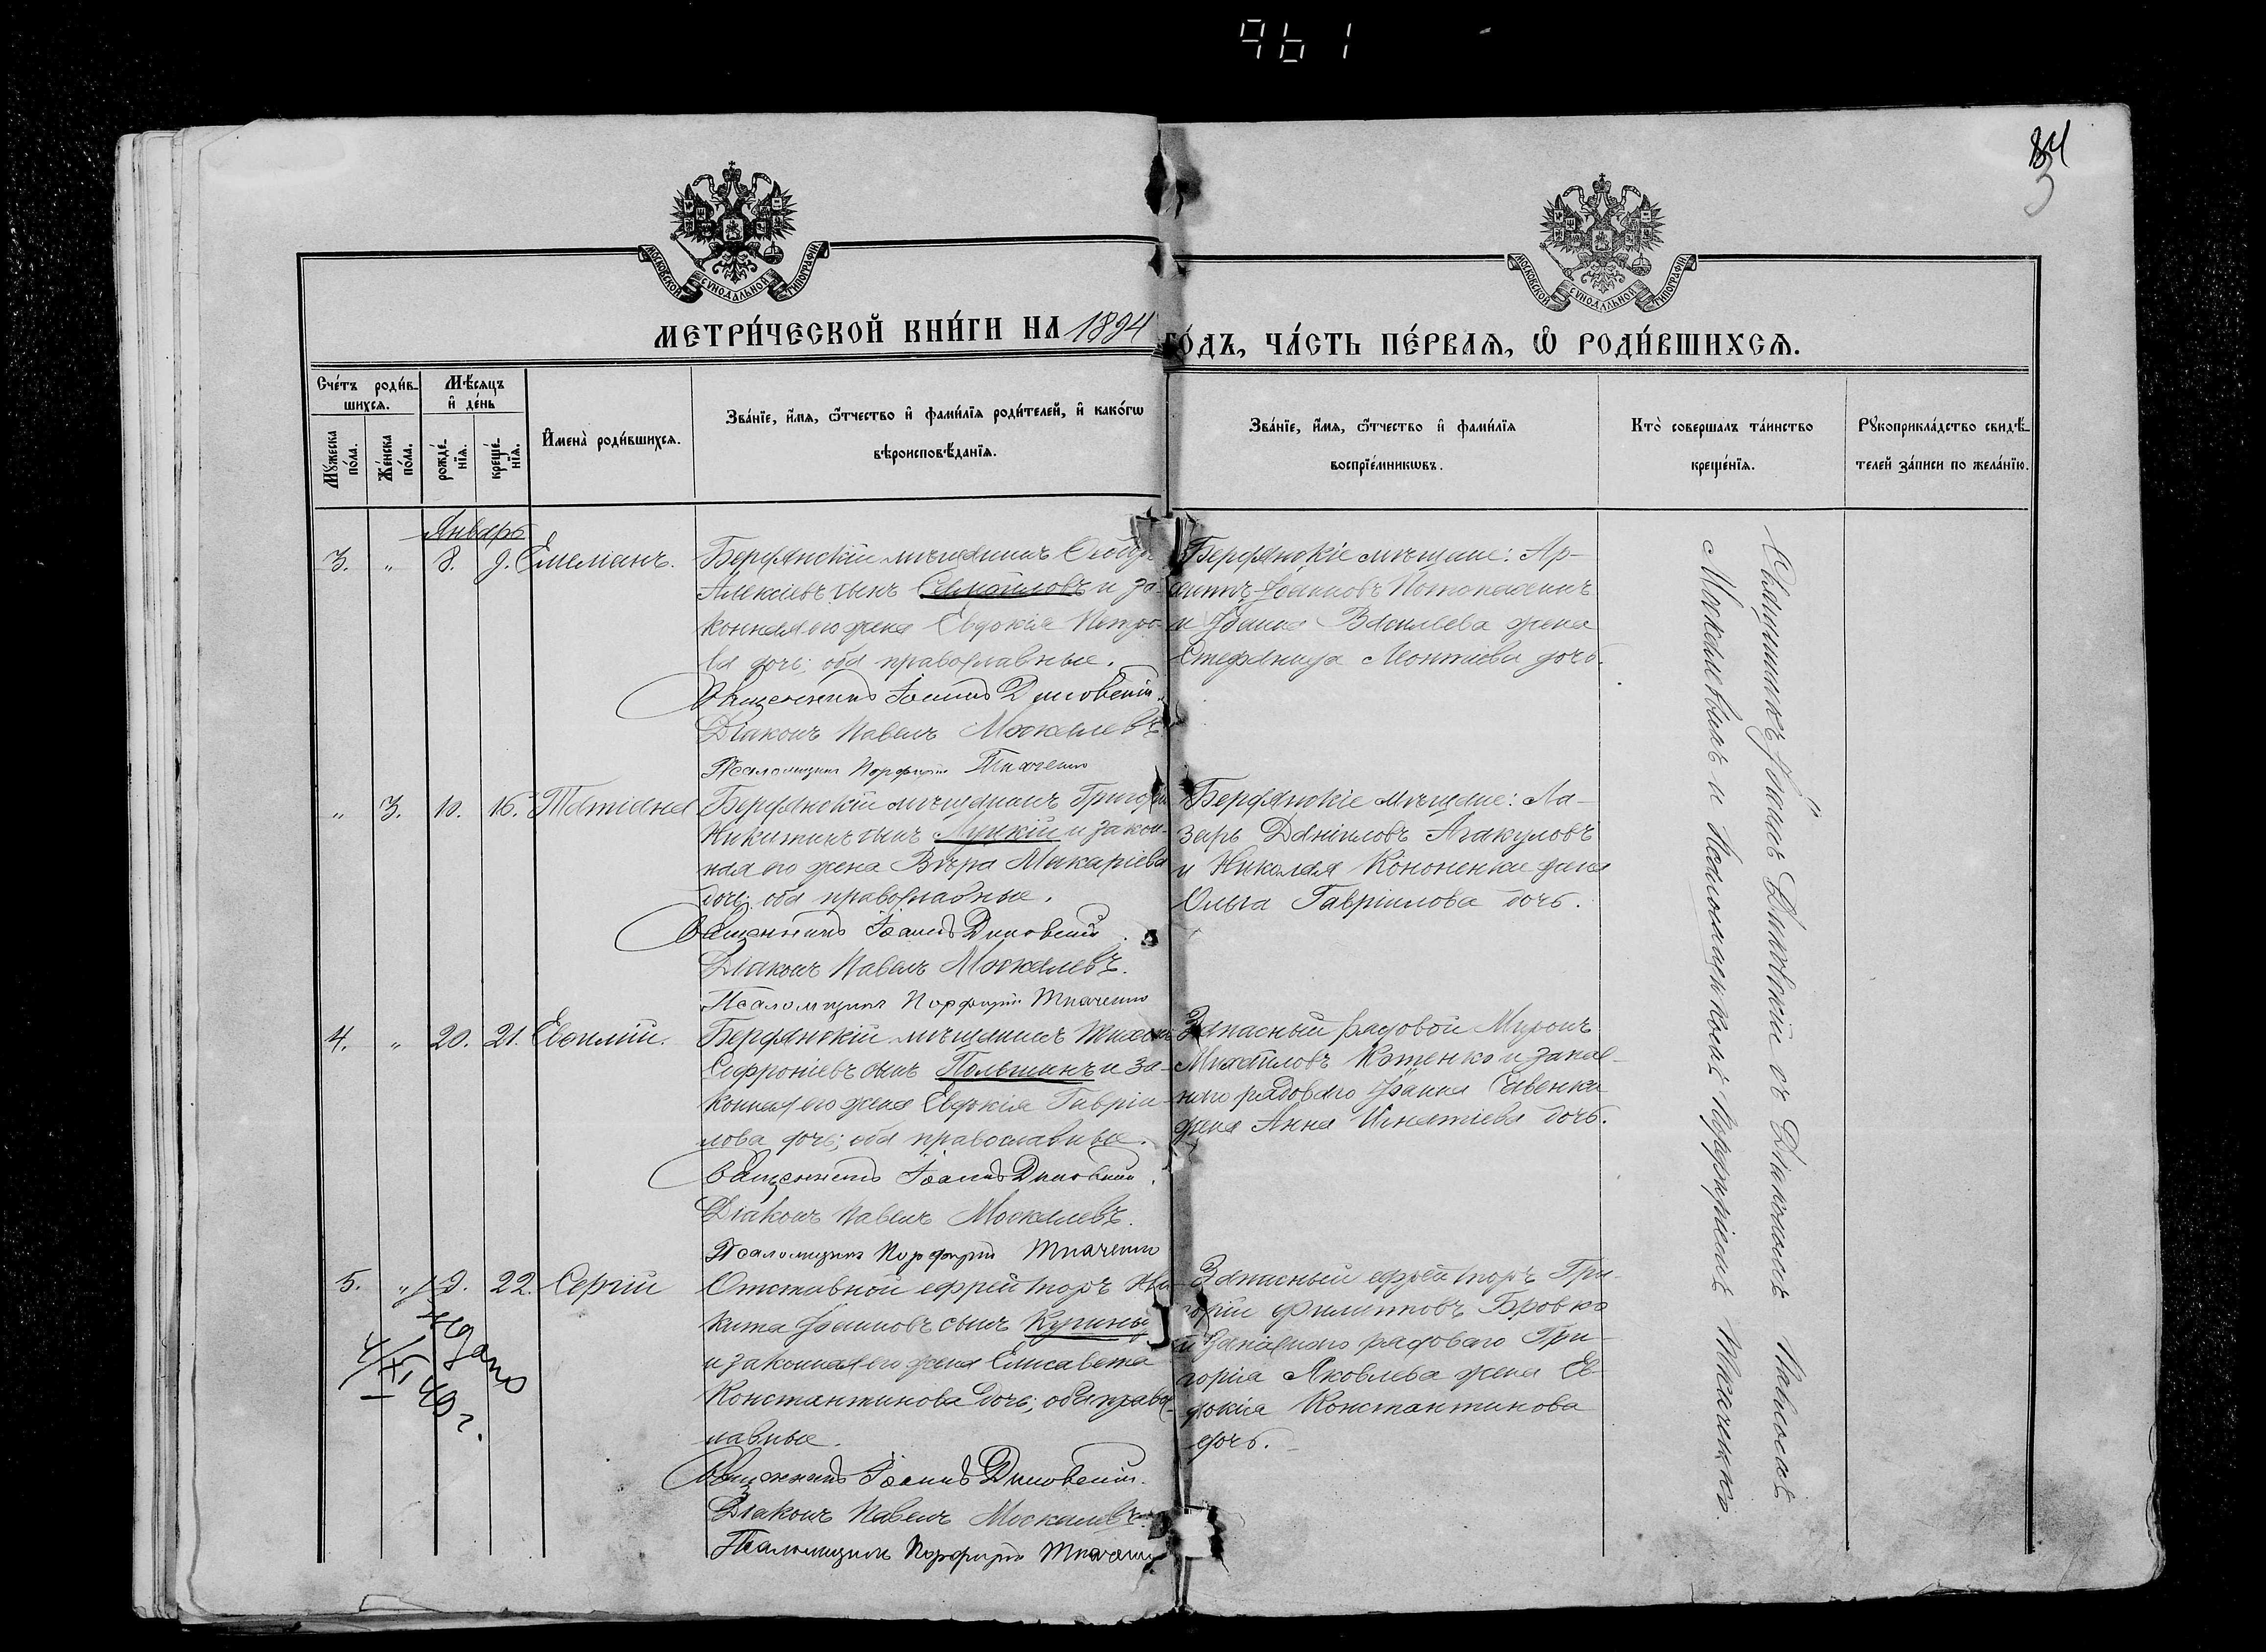 961
84
3
МОСКОВСКОЙ СУНОДАЛЬНОЙ ТИПОГРАФІИ
МОСКОВСКОЙ СУНОДАЛЬНОЙ ТИПОГРАФІИ
МЕТРИ́ЧЕСКОЙ КНИ́ГИ НА 1894 ГО́ДЪ, ЧА́СТЬ ПЕ́РВАѦ, Ѡ҆ РОДИ́ВШИХСѦ.
Сче́тъ роди́в-
шихсѧ.
Мꙋ́жеска по́ла.
Же́нска по́ла.
Мѣ́сѧцъ
и҆ де́нь
рожде́-нїѧ.
креще́-нїѧ.
И҆мена̀ роди́вшихсѧ.
Зва́нїе, и҆́мѧ, ѻ҆́тчество и҆ фами́лїѧ роди́телей, и҆ како́гѡ
вѣроисповѣ́данїѧ.
Зва́нїе, и҆́мѧ, ѻ҆́тчество и҆ фами́лїѧ
воспрїе́мникѡвъ.
Кто̀ соверша́лъ та́инство
креще́нїѧ.
Рꙋкоприкла́дство свидѣ́-
телей за́писи по жела́нїю.
Январь
3. " 8. 9. Емеліанъ.
Бердянскій мѣщанинъ
Алексіевъ сынъ Самойловъ и за-
конная его жена Евдокія Петро-
ва дочь; оба православные.
Священникъ Іоаннъ
Діаконъ Павелъ Москалевъ
Псаломщикъ Порфирій Ткаченко
Бердянскіе мѣщане: Ар-
Іоанновъ
и Іоанна Васильева жена
Стефанида Леонтіева дочь.
" 3. 10. 16. Татіана
Бердянскій мѣщанинъ Григорій
Никитинъ сынъ Луцкій и закон-
ная его жена Вѣра Макаріева
дочь; оба православные.
Священникъ Іоаннъ
Діаконъ Павелъ Москалевъ.
Псаломщикъ Порфирій Ткаченко
Бердянскіе мѣщане: Ла-
зарь Даніиловъ Агакуловъ
и Николая Кононенки жена
Ольга Гавріилова дочь.
4. " 20. 21. Евѳимій.
Бердянскій мѣщанинъ
Софроніевъ сынъ Польшинъ и за-
конная его жена Евдокія Гаврiи-
лова дочь; оба православные.
Священникъ Іоаннъ
Діаконъ Павелъ Москалевъ.
Псаломщикъ Порфирій Ткаченко
Запасный рядовой Миронъ
Михайловъ Котенко и запас-
наго рядоваго Іоанна Савенка
жена Анна Игнатіева дочь.
5. " 22. Сергій
Отставной ефрейторъ Ни-
кита Іоанновъ сынъ
и законная его жена Елисавета
Константинова дочь; оба правос-
лавные.
Священникъ Іоаннъ
Діаконъ Павелъ Москалевъ.
Псаломщикъ Порфирій Ткаченко
Запасный ефрейторъ Гри-
горій Филипповъ Бровко
и запаснаго рядоваго Гри-
горія Яковлева жена Ев-
докія Константинова
дочь.
Священникъ Іоаннъ съ Діакономъ Павломъ
Москалевымъ и Псаломщикомъ Порфиріемъ Ткаченко.